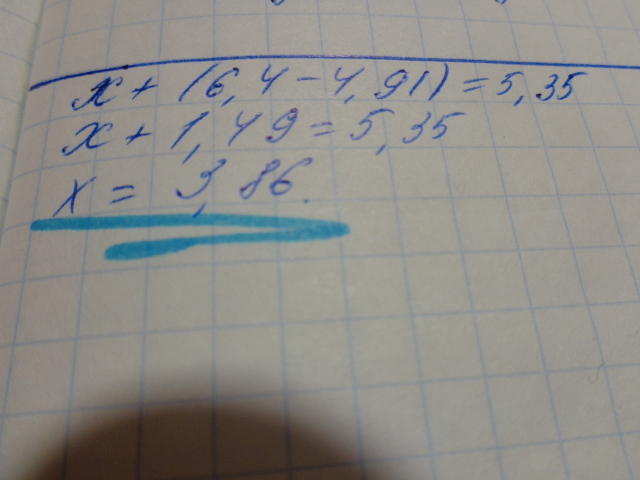 x + (6,4 - 4,91) = 5,35
x + 1,49 = 5,35
x = 3,86.